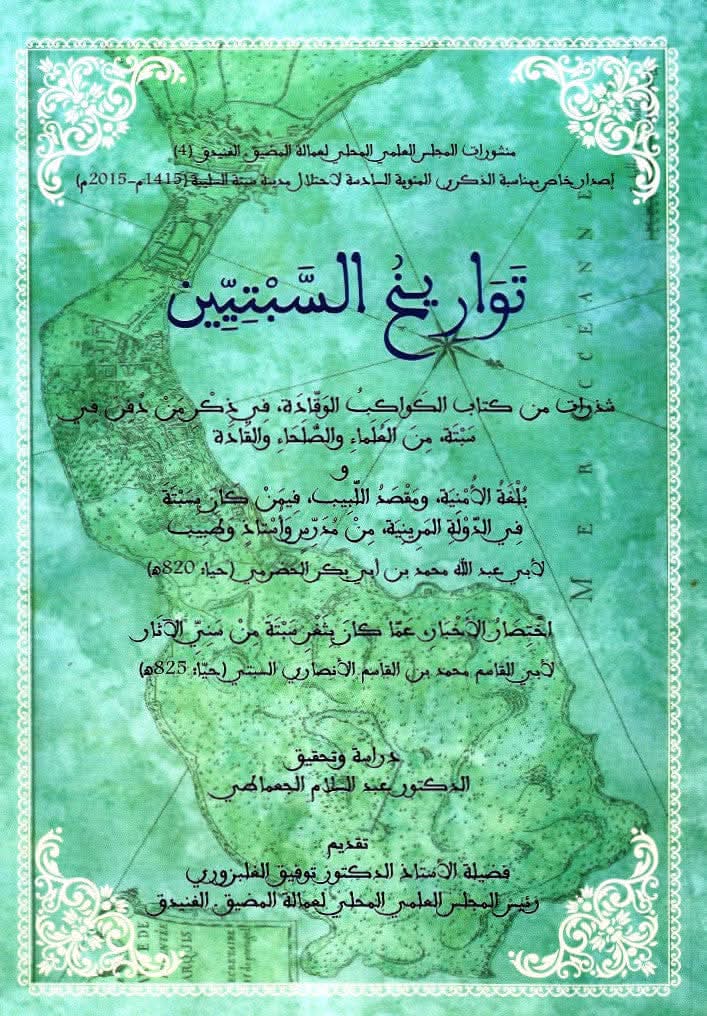 منشورات المجلس العلمي المحلي لعمالة المضيق الفنيدق (4)
إصدار خاص بمناسبة الذكرى المئوية السادسة لاحتلال مدينة سبتة السليبة (1415م-2015م)
تَوَارِيخُ السَّبْتِيِّين
شذرات من كتاب الكَواكبُ الوَقَّادَة، في ذِكْر مَنْ دُفنَ في
سَبْتَة، مِنَ العُلَماءِ والصُّلَحَاءِ والقَادَة
و
بُلْغَةُ الأُمْنِيَة، ومَقْصَدُ اللَّبِيب، فِيمَنْ كَانَ بِسَبْتَةَ
فِي الدَّوْلَةِ المَرِينِيَة، مِنْ مُدَرِّسٍ وَأُسْتَاذٍ وَطَبِيب
لأبي عبد الله محمد بن أبي بكر الحضرمي (حيا: 820ه)
اخْتِصَارُ الأَخْبَار، عمَّا كانَ بِثَغْرِ سَبْتَةَ مِنْ سَنِيِّ الآثَار
لأبي القاسم محمد بن القاسم الأنصاري السبتي (حيّا: 825ه)
دراسة وتحقيق
الدكتور عبد السلام الجعماطي
تقديم
فضيلة الأستاذ الدكتور توفيق الغلبزوري
رئيس المجلس العلمي المحلي لعمالة المضيق. الفنيدق
MER OCCÉANNE